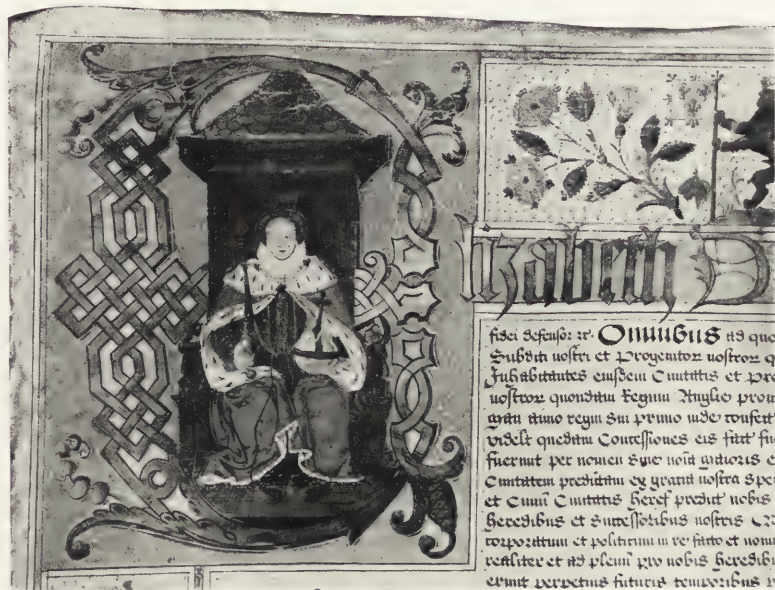 lizabeth D
fidei defensor zc. Omnibus ad quo
Subditi nostri et Progenitor nostror q
Inhabitantes eiusdem Civitatis et pre
nostror quondam Regum Anglie prou
gran anno regni sui primo inde confect
videlt quedam Concessiones eis fact fu
fuerint per nomen sive noia maioris e
Civitatem predictam ex gratia nostra Spe
et Civiu Civitatis Heref predict nobis
heredibus et Successoribus nostris
corporatum et politicum in re facto et nomi
realiter et ad plenu pro nobis heredib
erunt perpetuis futuris temporibus p